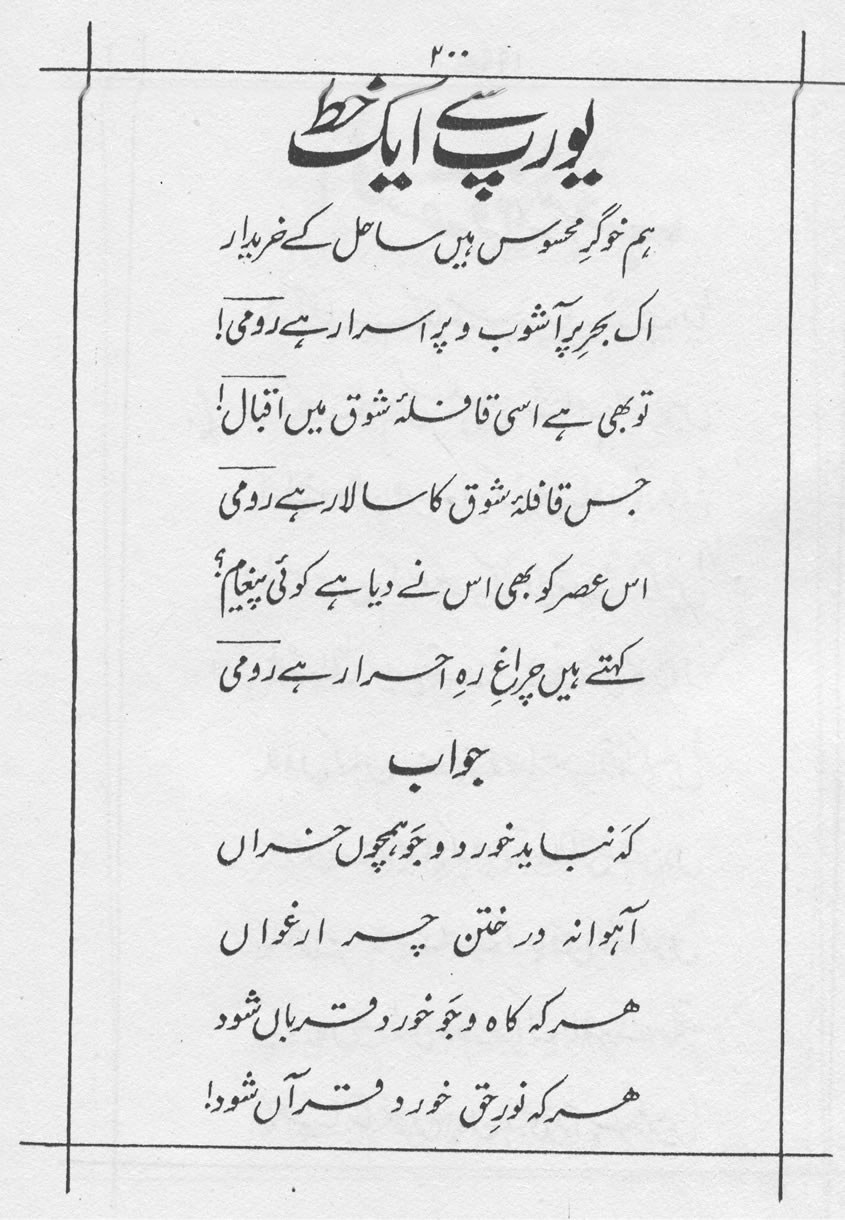 ۲۰۰
یورپ سے ایک خط
ہم خوگرِ محسوس ہیں ساحل کے خریدار
اک بحرِ پر آشوب و پر اسرار ہے رومی!
تو بھی ہے اسی قافلۂ شوق میں اقبال!
جس قافلۂ شوق کا سالار ہے رومی
اس عصر کو بھی اس نے دیا ہے کوئی پیغام؟
کہتے ہیں چراغِ رہِ احرار ہے رومی
جواب
کہ نباید خورد و جَو ہمچوں خراں
آہوانہ در ختن چر ارغواں
ہر کہ کاہ و جَو خورد قرباں شود
ہر کہ نورِ حق خورد قرآں شود!